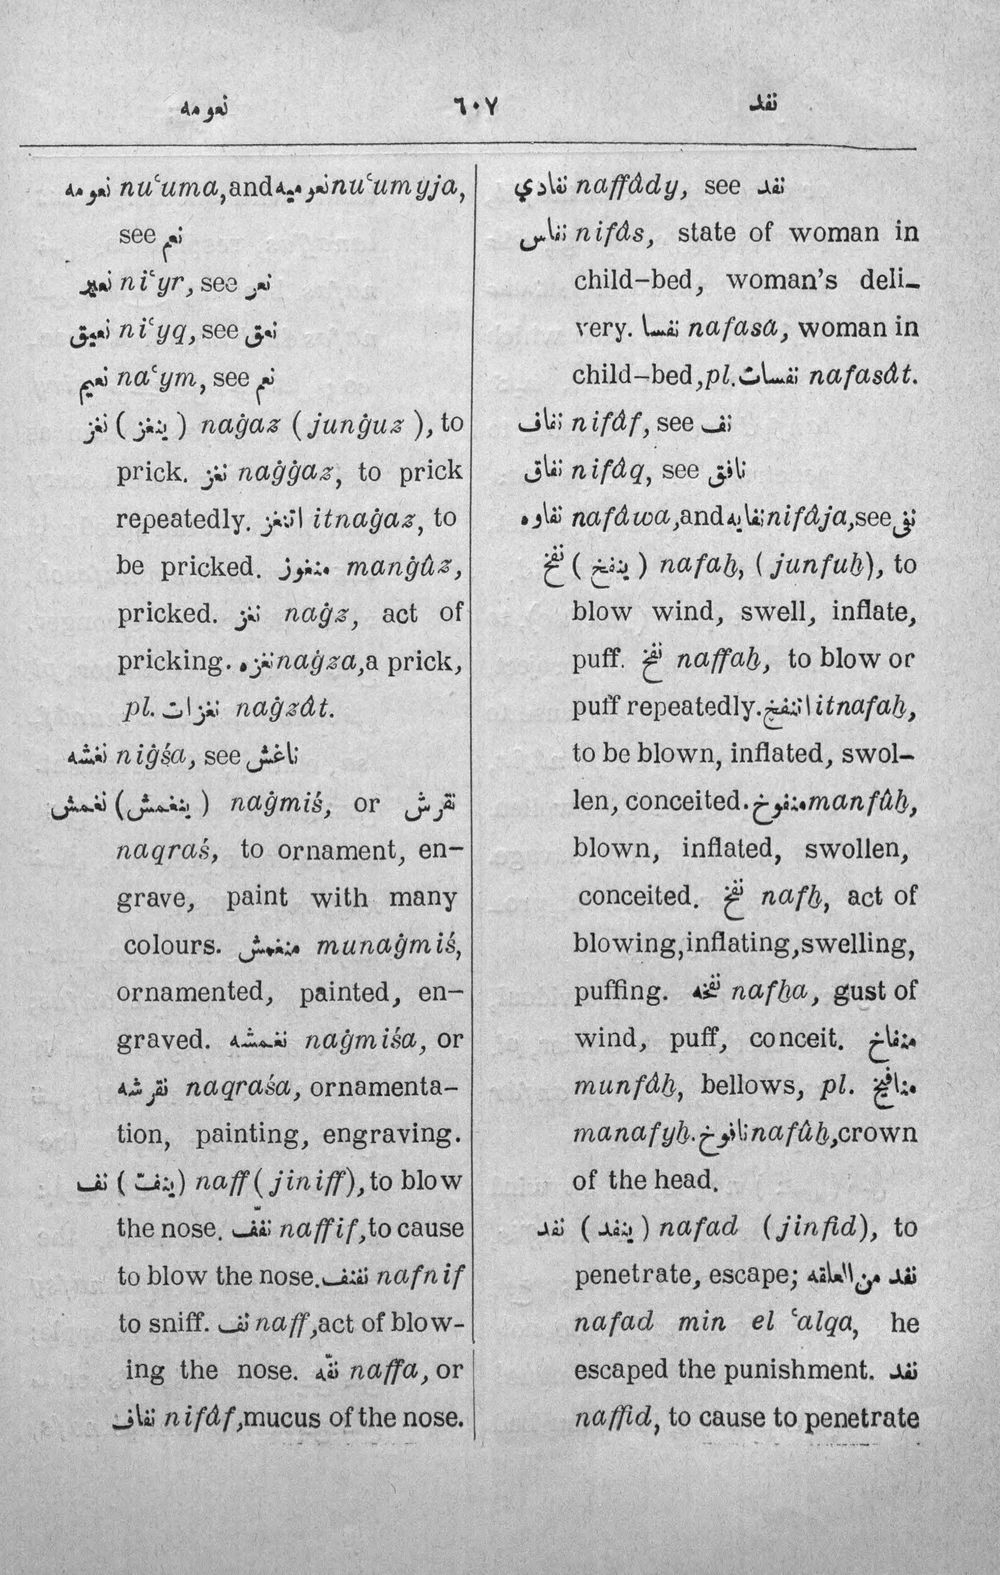 نعومه ٦٠٧ نفد
نعومه nu‘uma, and نعوميه nu‘umyja,
see نعم
نعير ni‘yr, see نعر
نعيق ni‘yq, see نعق
نعيم na‘ym, see نعم
نغز ( ينغز ) naġaz (junġuz ), to
prick. نغز naġġaz, to prick
repeatedly. اتنغز itnaġaz, to
be pricked. منغوز manġûz,
pricked. نغز naġz, act of
pricking. نغزه naġza, a prick,
pl. نغزات naġzât.
نغشه niġśa, see ناغش
نغمش (ينغمش ) naġmiś, or نقرش
naqraś, to ornament, en-
grave, paint with many
colours. منغمش munaġmiś,
ornamented, painted, en-
graved. نغمشه naġmiśa, or
نقرشه naqraśa, ornamenta-
tion, painting, engraving.
نف ( ينفّ ) naff (jiniff), to blow
the nose. نفّف naffif, to cause
to blow the nose. نفنف nafnif
to sniff. نف naff, act of blow-
ing the nose. نفّه naffa, or
نفاف nifâf, mucus of the nose.
نفادي naffâdy, see نفد
نفاس nifâs, state of woman in
child-bed, woman’s deli-
very. نفسا nafasa, woman in
child-bed, pl. نفسات nafasât.
نفاف nifâf, see نف
نفاق nifâq, see نافق
نفاوه nafâwa, and نفايه nifâja, see نفى
نفخ ( ينفخ ) nafaḫ, (junfuḫ), to
blow wind, swell, inflate,
puff. نفخ naffaḫ, to blow or
puff repeatedly. اتنفخ itnafaḫ,
to be blown, inflated, swol-
len, conceited. منفوخ manfûḫ,
blown, inflated, swollen,
conceited. نفخ nafḫ, act of
blowing, inflating, swelling,
puffing. نفخه nafḫa, gust of
wind, puff, conceit. منفاخ
munfâḫ, bellows, pl. منافيخ
manafyḫ. نافوخ nafûḫ, crown
of the head.
نفد ( ينفد ) nafad (jinfid), to
penetrate, escape; نفد من العلقه
nafad min el ‘alqa, he
escaped the punishment. نفد
naffid, to cause to penetrate